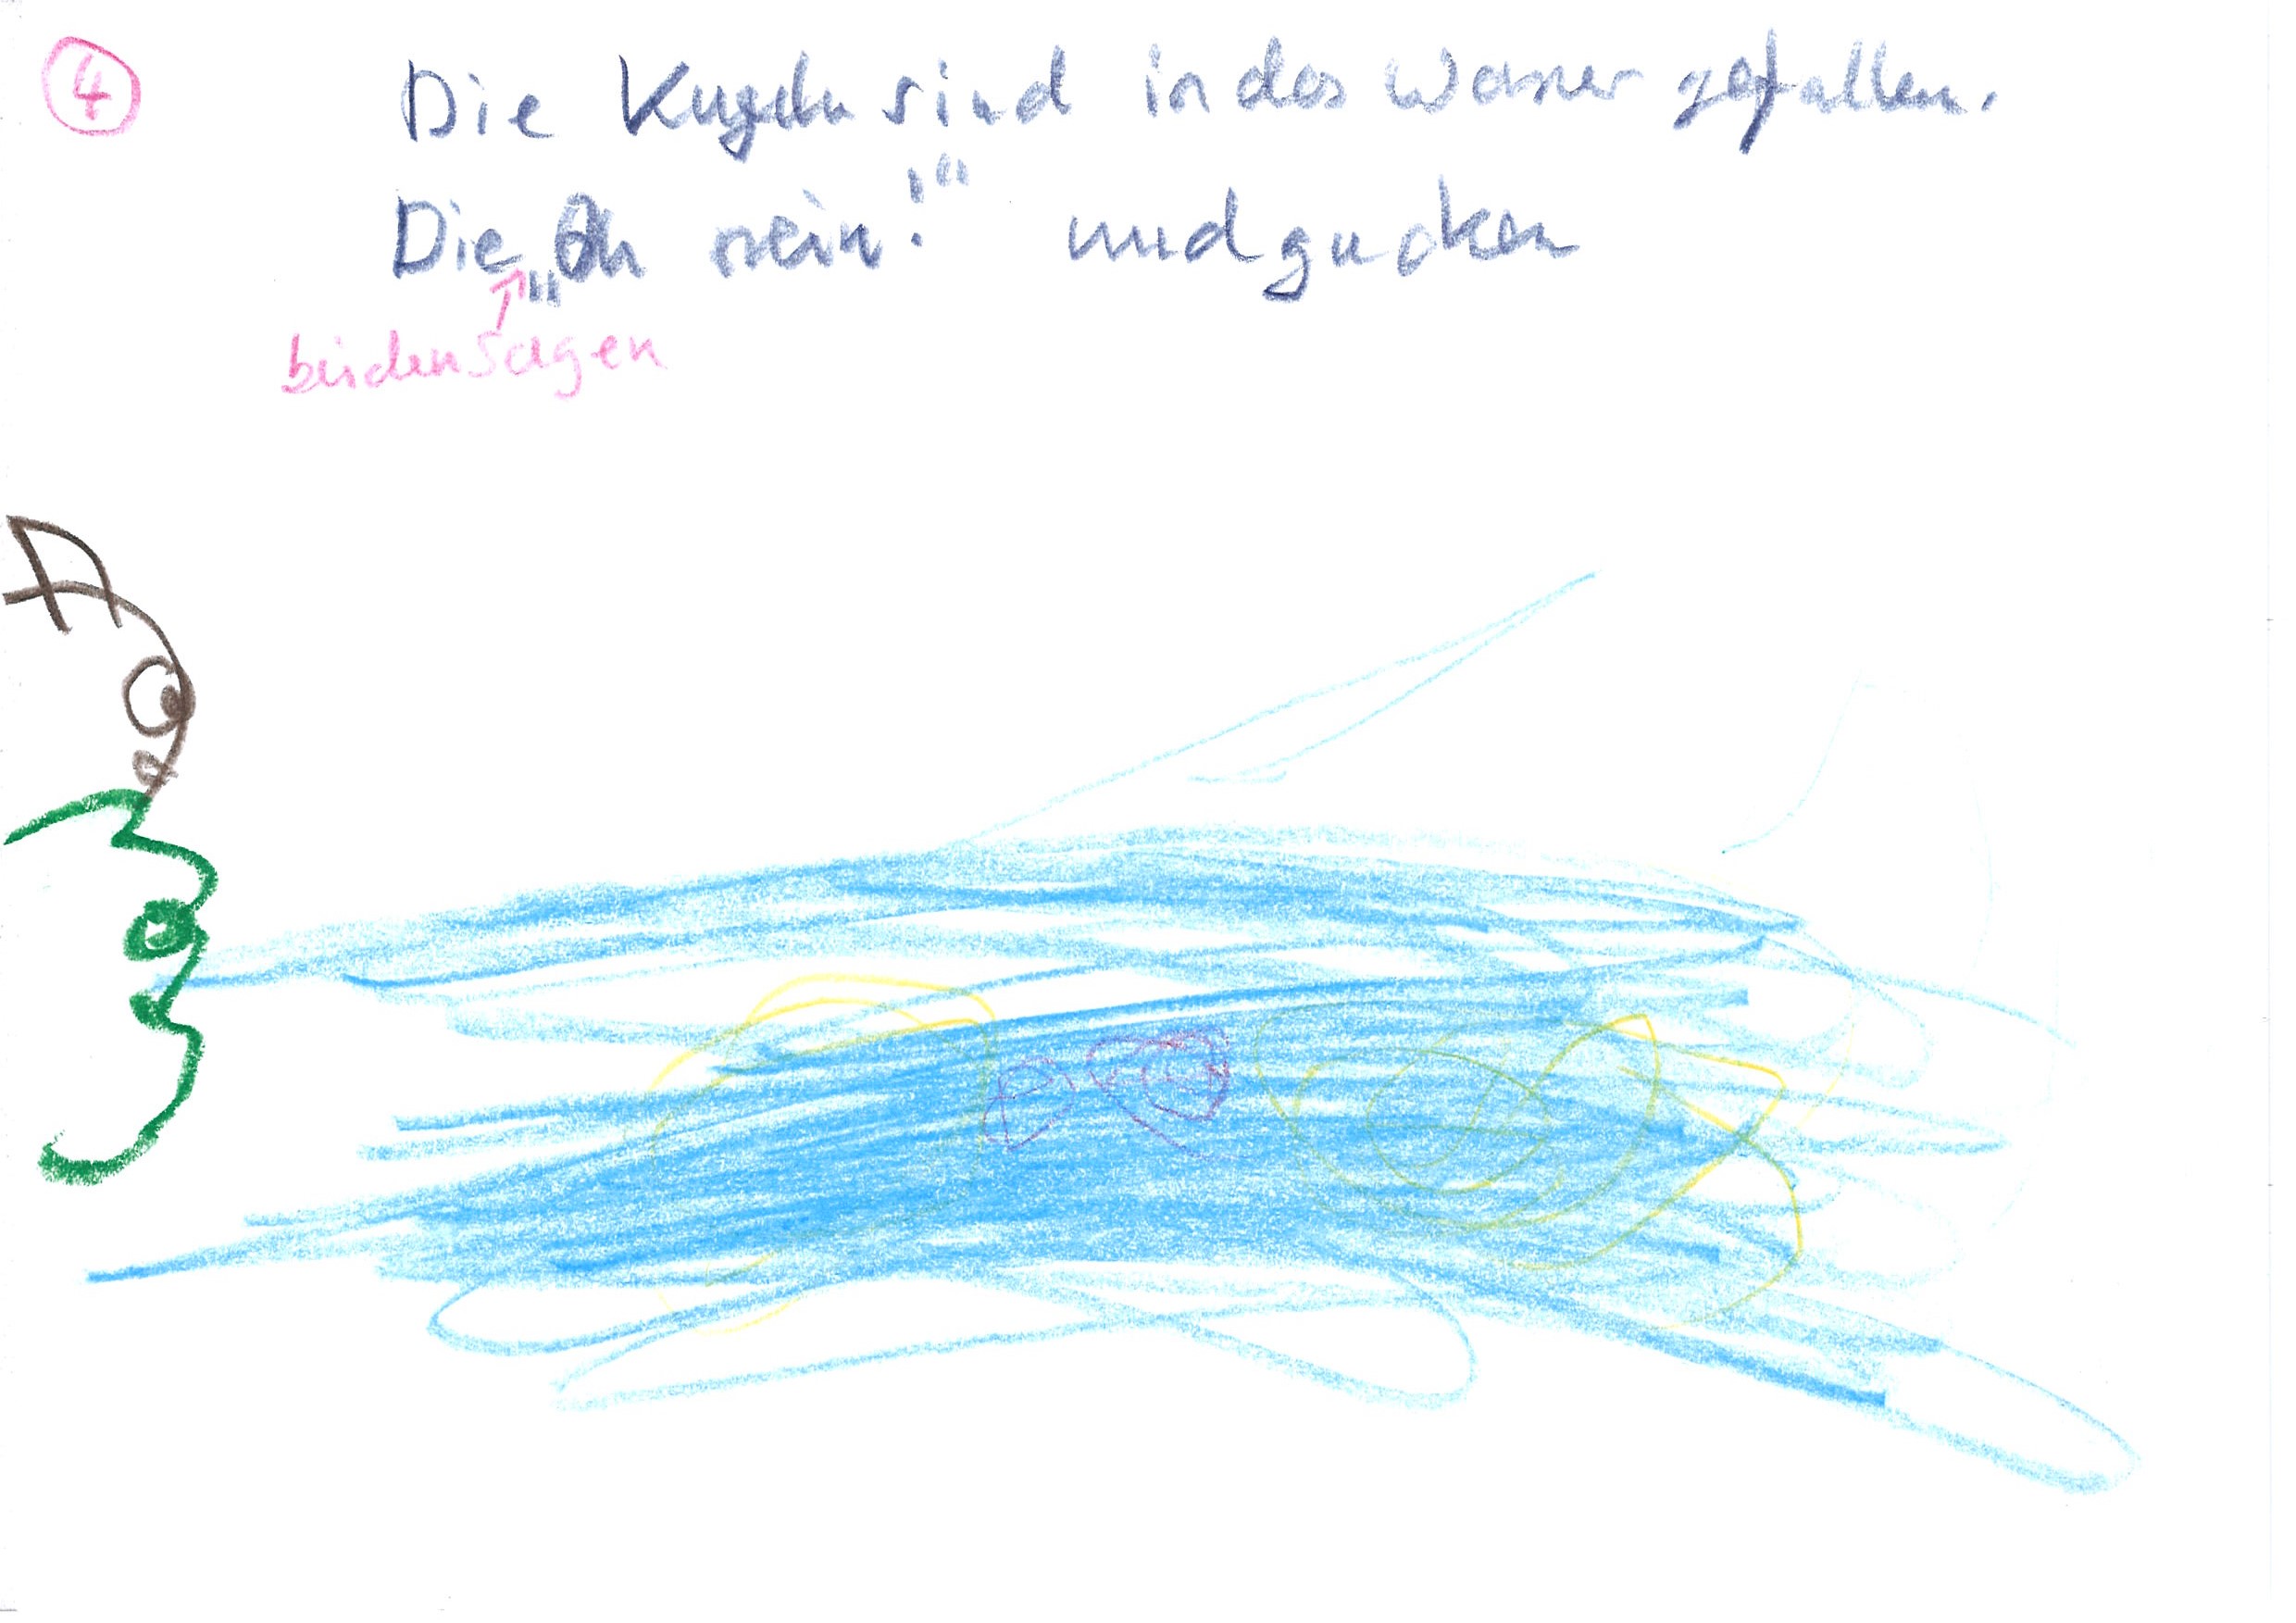 4
Die Kugeln sind in das Wasser gefallen.
Die „Oh nein!“ und gucken
beiden sagen